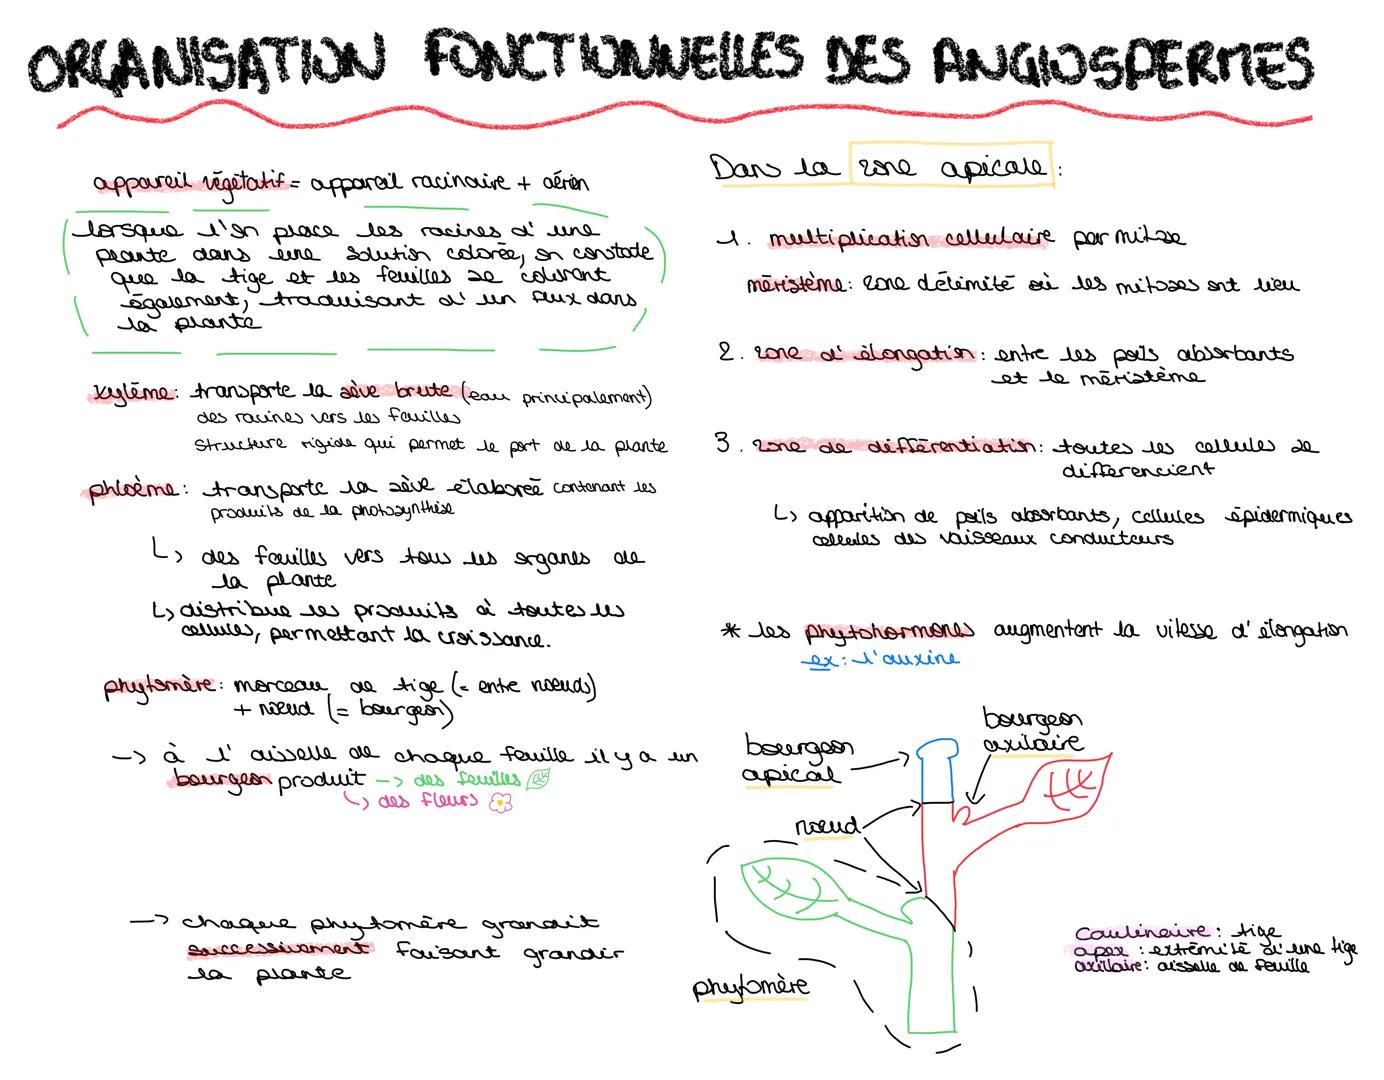 ORGANISATION FONCTIONNELLES DES ANGIOSPERMES
appareil végétatif = appareil racinaire + aérien
lorsque l'on place les racines d'une
plante dans une solution colorée, on constate
que la tige et les feuilles se colorant
également, traduisant d'un flux dans
la plante
xylème: transporte la sève brute (eau principalement)
des racines vers les feuilles
structure rigide qui permet le port de la plante
phloème: transporte la sève élaboreé contenant les
produits de la photosynthèse
↳ des feuilles vers tous les organes de
la plante
↳ distribue les produits à toutes les
cellules, permettant la croissance.
phytomère: morceau de tige (= entre nœuds)
+ nœud (= bourgeon)
-> à l'aisselle de chaque feuille il y a un
bourgeon produit -> des feuilles
↳ des fleurs
-> chaque phytomère grandit
successivement faisant grandir
la plante
Dans la zone apicale :
1. multiplication cellulaire par mitose
méristème: zone délimité où les mitoses ont lieu
2. zone d'élongation: entre les poils absorbants
et le méristème
3. zone de différentiation: toutes les cellules se
différencient
↳ apparition de poils absorbants, cellules épidermiques
cellules des vaisseaux conducteurs
* les phytohormones augmentent la vitesse d'élongation
ex: l'auxine
bourgeon
apical
bourgeon
axilaire
nœud
phytomère
Caulinaire: tige
apex: extrémité d'une tige
axillaire: aisselle de feuille